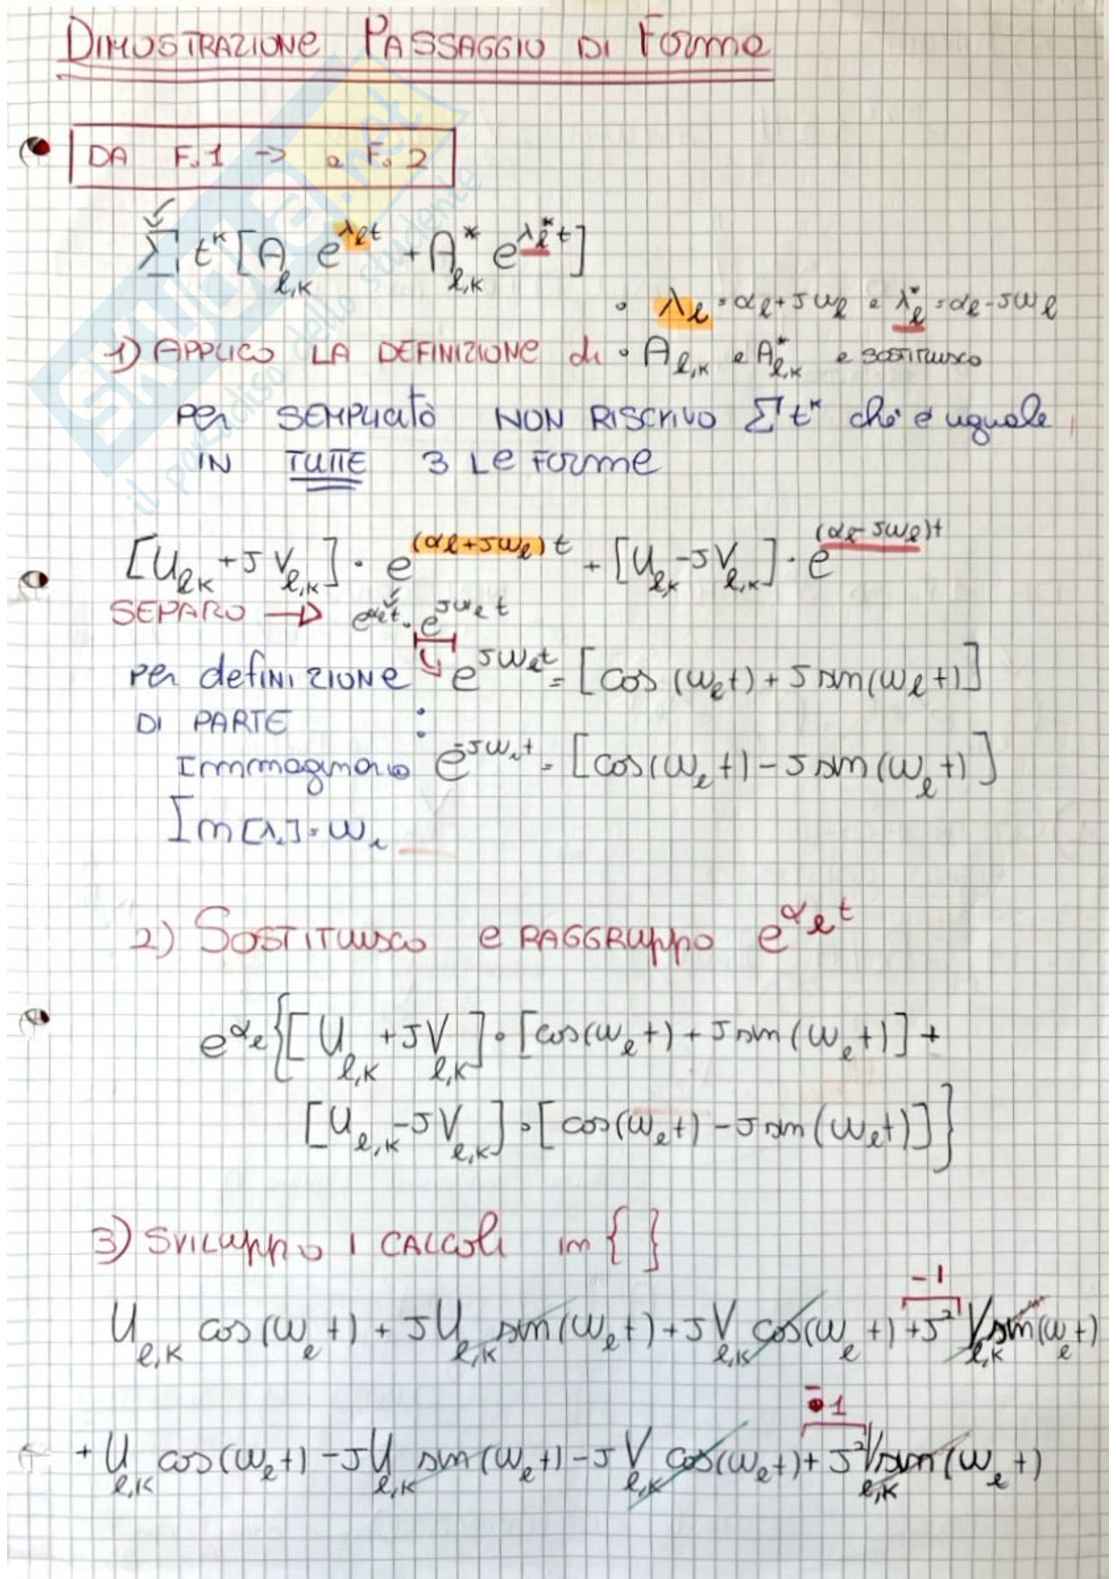 DIMOSTRAZIONE PASSAGGIO DI Forma
DA F.1 -> a F.2
Σ t^k [A_{l,k} e^{λ_l t} + A*_{l,k} e^{λ*_l t}]
• λ_l = α_l + jω_l e λ*_l = α_l - jω_l
1) APPLICO LA DEFINIZIONE di • A_{l,k} e A*_{l,k} e sostituisco
per SEMPLICITÀ NON RISCRIVO Σ t^k che è uguale
IN TUTTE 3 Le Forme
[U_{l,k} + jV_{l,k}] · e^{(α_l + jω_l)t} + [U_{l,k} - jV_{l,k}] · e^{(α_l - jω_l)t}
SEPARO → e^{α_l t} · e^{jω_l t}
per definizione e^{jω_l t} = [cos(ω_l t) + j sin(ω_l t)]
DI PARTE :
Immmaginaria e^{-jω_l t} = [cos(ω_l t) - j sin(ω_l t)]
Im[λ_l] = ω_l
2) SOSTITUISCO e RAGGRUppo e^{α_l t}
e^{α_l} {[U_{l,k} + jV_{l,k}] · [cos(ω_l t) + j sin(ω_l t)] +
[U_{l,k} - jV_{l,k}] · [cos(ω_l t) - j sin(ω_l t)]}
3) SVILuppo I CALCOli in { }
-1
U_{l,k} cos(ω_l t) + jU_{l,k} sin(ω_l t) + jV_{l,k} cos(ω_l t) + j² V_{l,k} sin(ω_l t)
-1
+ U_{l,k} cos(ω_l t) - jU_{l,k} sin(ω_l t) - jV_{l,k} cos(ω_l t) + j² V_{l,k} sin(ω_l t)
skuola.net
il paradiso dello studente